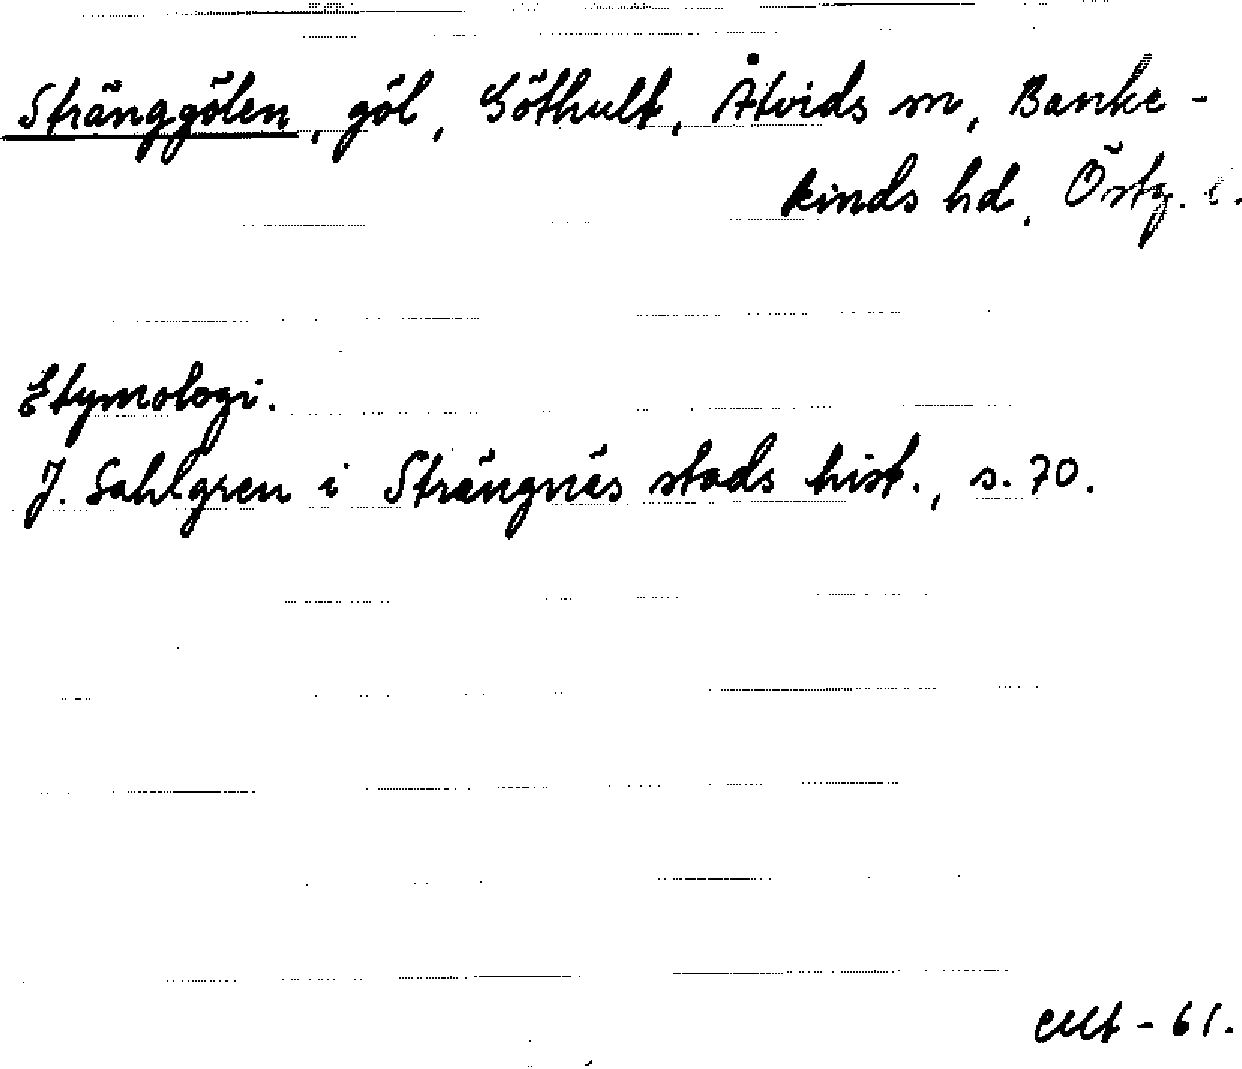 Stränggölen, göl, Göthult, Åtvids sn, Banke-
kinds hd. Östg. l.
Etymologi.
J. Sahlgren i Strängnäs stads hist., s. 70.
- 61.